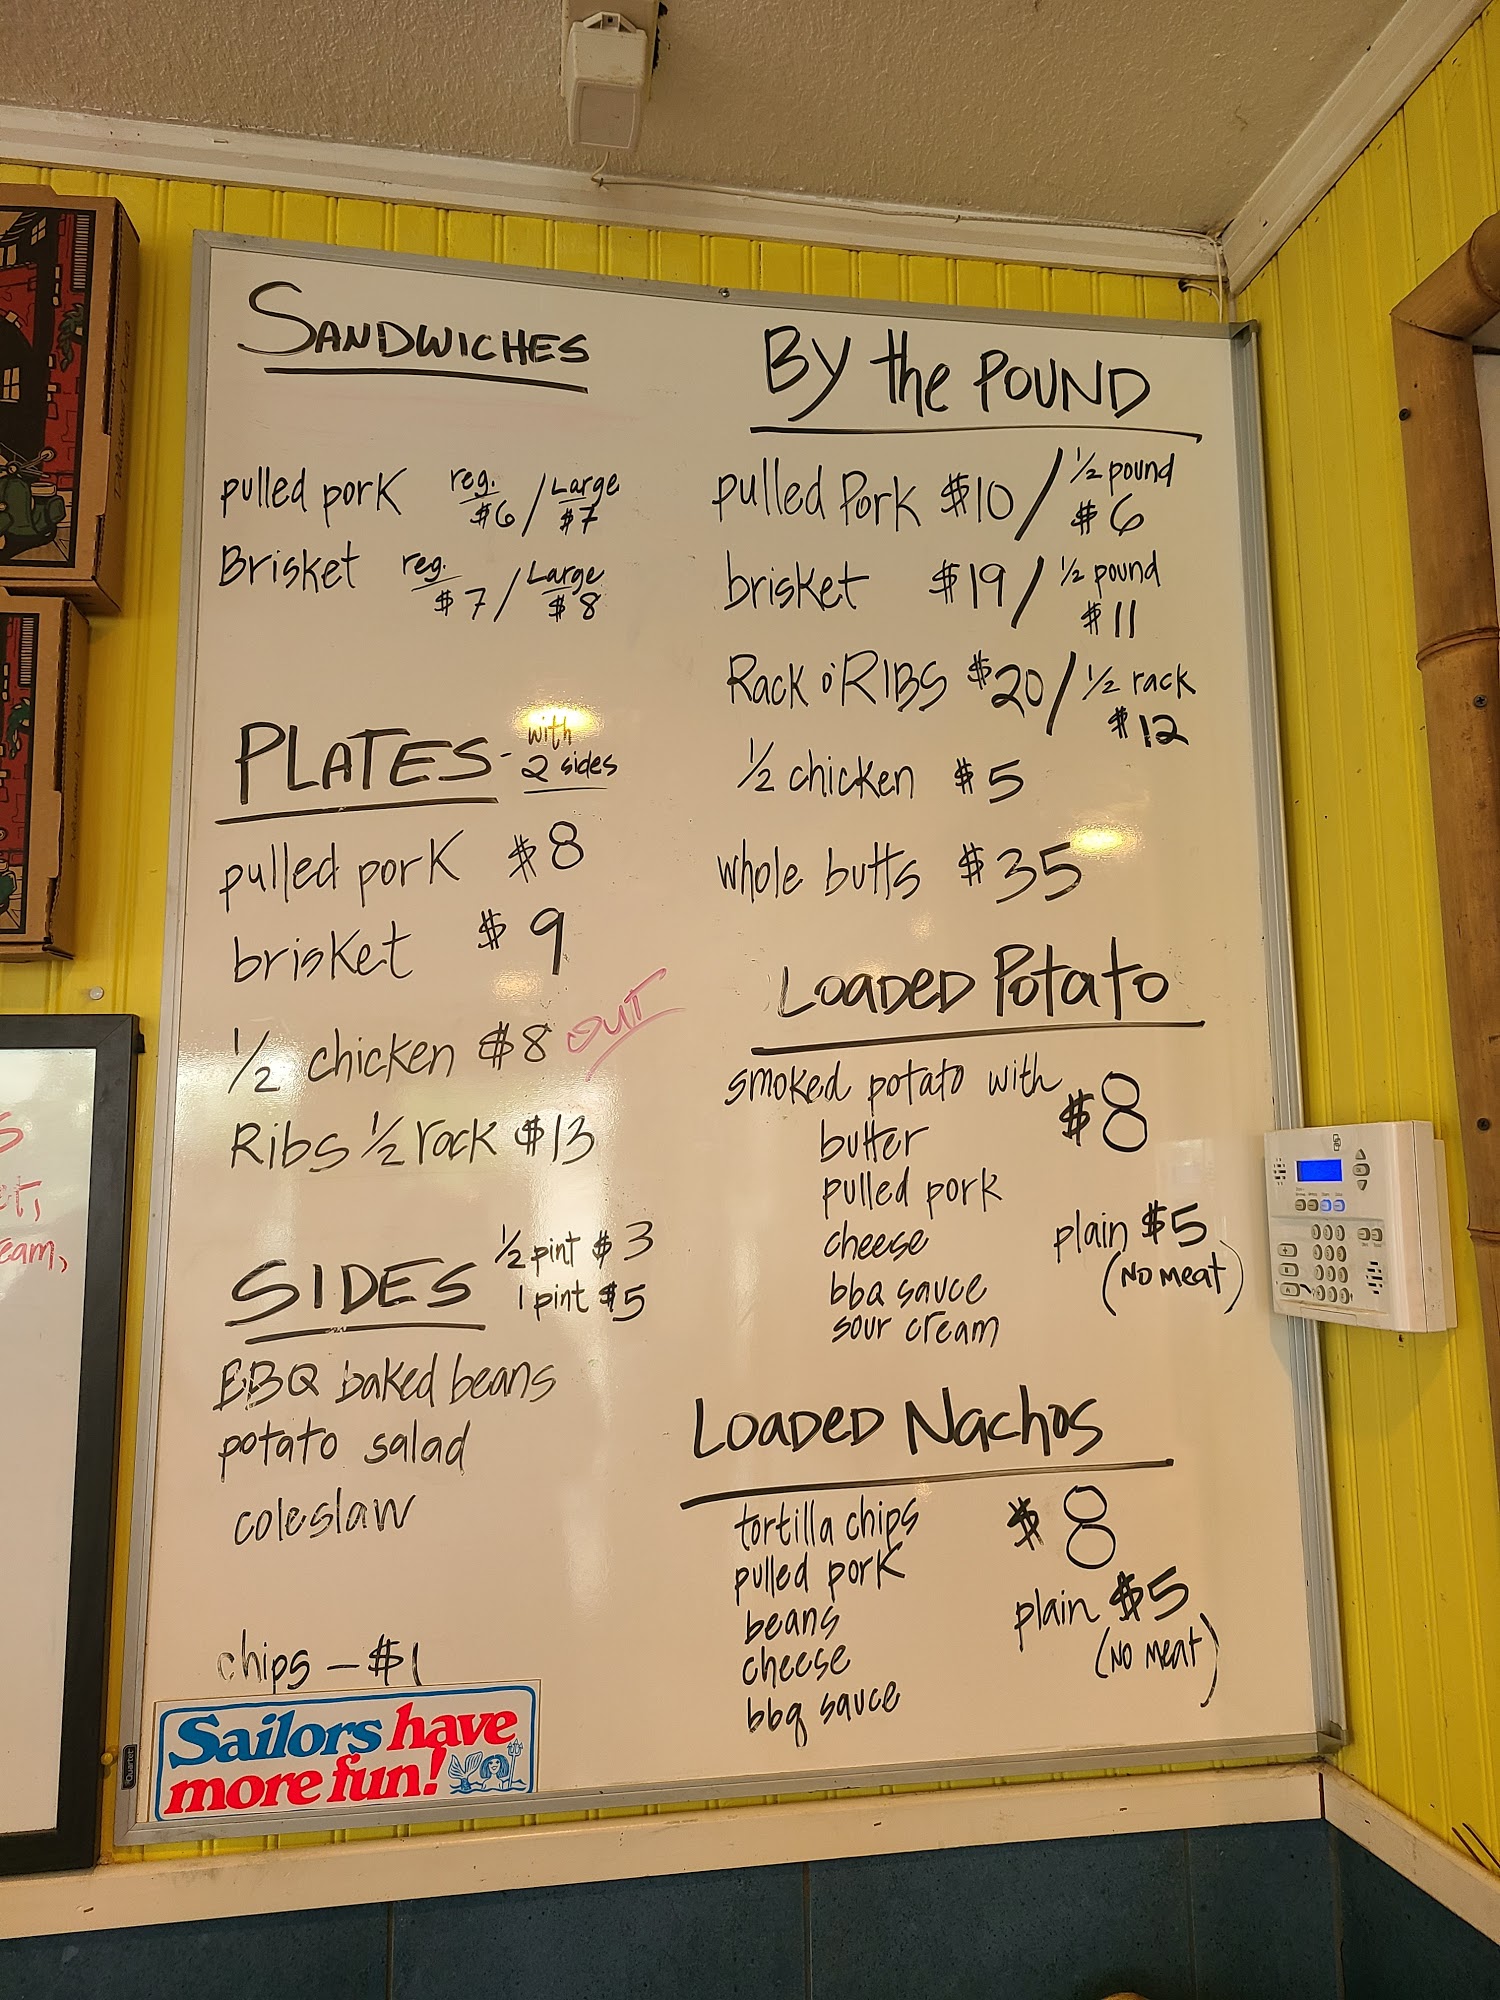 SANDWICHES
pulled pork reg. $6 / Large $7
Brisket reg. $7 / Large $8
PLATES - with 2 sides
pulled pork $8
brisket $9
1/2 chicken $8 OUT
Ribs 1/2 rack $13
SIDES 1/2 pint $3
1 pint $5
BBQ baked beans
potato salad
coleslaw
chips - $1
Sailors have
more fun!
By the POUND
pulled Pork $10 / 1/2 pound $6
brisket $19 / 1/2 pound $11
Rack o' RIBS $20 / 1/2 rack $12
1/2 chicken $5
whole butts $35
LOADED Potato
smoked potato with $8
butter
pulled pork
cheese plain $5
bbq sauce (NO meat)
sour cream
LOADED Nachos
tortilla chips $8
pulled pork
beans plain $5
cheese (NO meat)
bbq sauce
Quartet